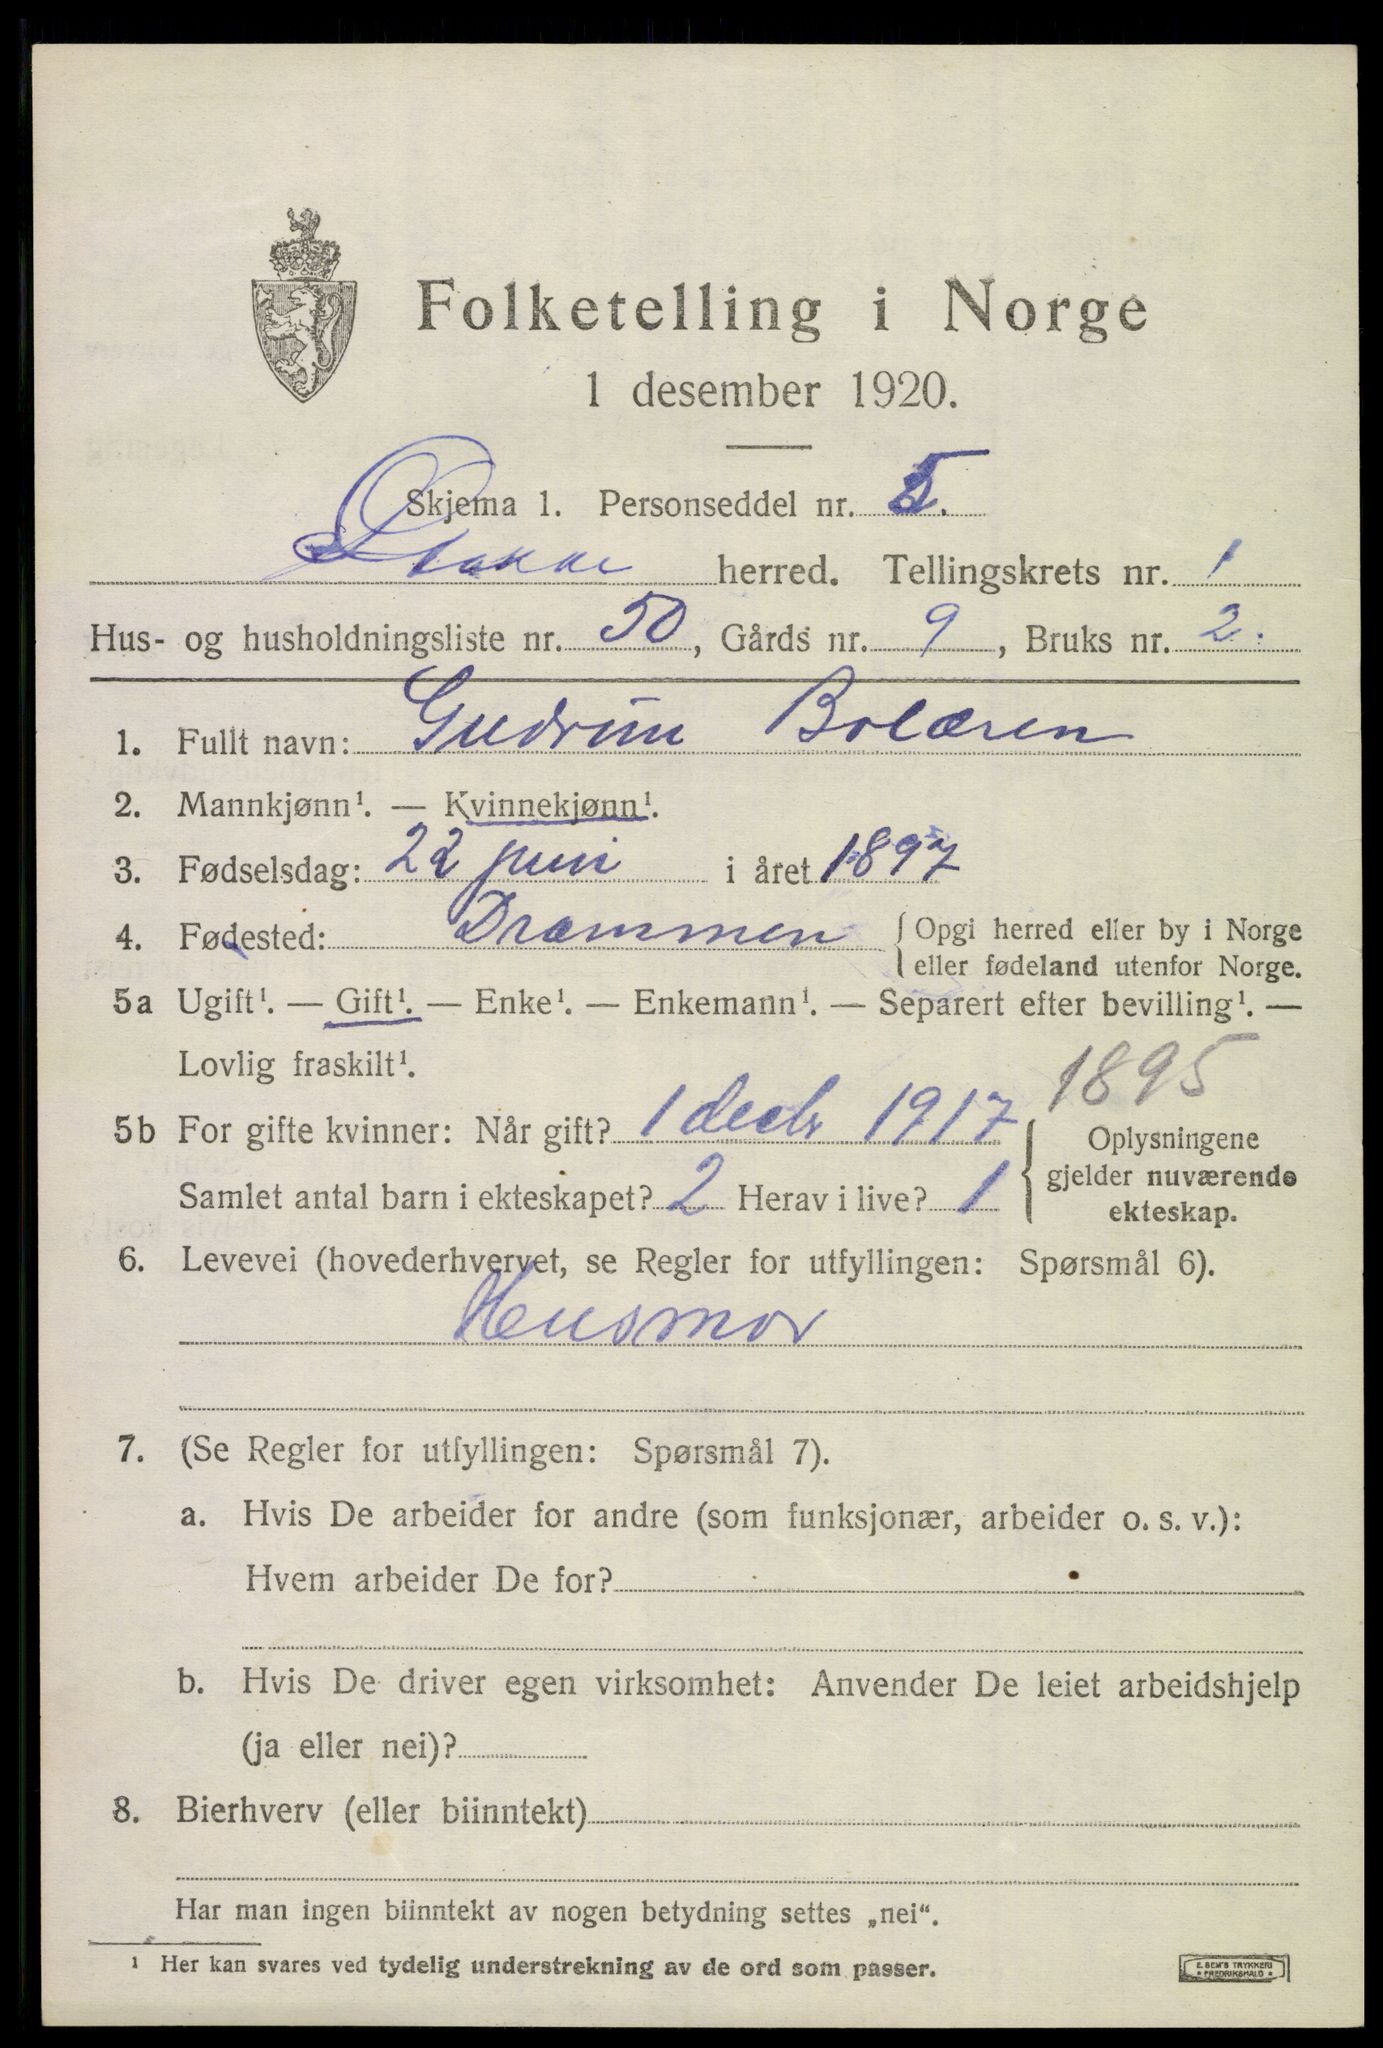 Folketelling i Norge
1 desember 1920.
Skjema 1. Personseddel nr. 5.
Stokke herred. Tellingskrets nr. 1
Hus- og husholdningsliste nr. 50, Gårds nr. 9, Bruks nr. 2.
1. Fullt navn: Gudrun Bolæren
2. Mannkjønn¹. — Kvinnekjønn¹.
3. Fødselsdag: 22 juni i året 1897
4. Fødested: Drammen { Opgi herred eller by i Norge
eller fødeland utenfor Norge.
5a Ugift¹. — Gift¹. — Enke¹. — Enkemann¹. — Separert efter bevilling¹. —
Lovlig fraskilt¹.
1895
5b For gifte kvinner: Når gift? 1 decbr 1917 { Oplysningene
gjelder nuværende
ekteskap.
Samlet antal barn i ekteskapet? 2 Herav i live? 1
6. Levevei (hovederhvervet, se Regler for utfyllingen: Spørsmål 6).
Husmor
7. (Se Regler for utfyllingen: Spørsmål 7).
a. Hvis De arbeider for andre (som funksjonær, arbeider o. s. v.):
Hvem arbeider De for?
b. Hvis De driver egen virksomhet: Anvender De leiet arbeidshjelp
(ja eller nei)?
8. Bierhverv (eller biinntekt)
Har man ingen biinntekt av nogen betydning settes „nei“.
¹ Her kan svares ved tydelig understrekning av de ord som passer.
E. SEM'S TRYKKERI
FREDRIKSHALD